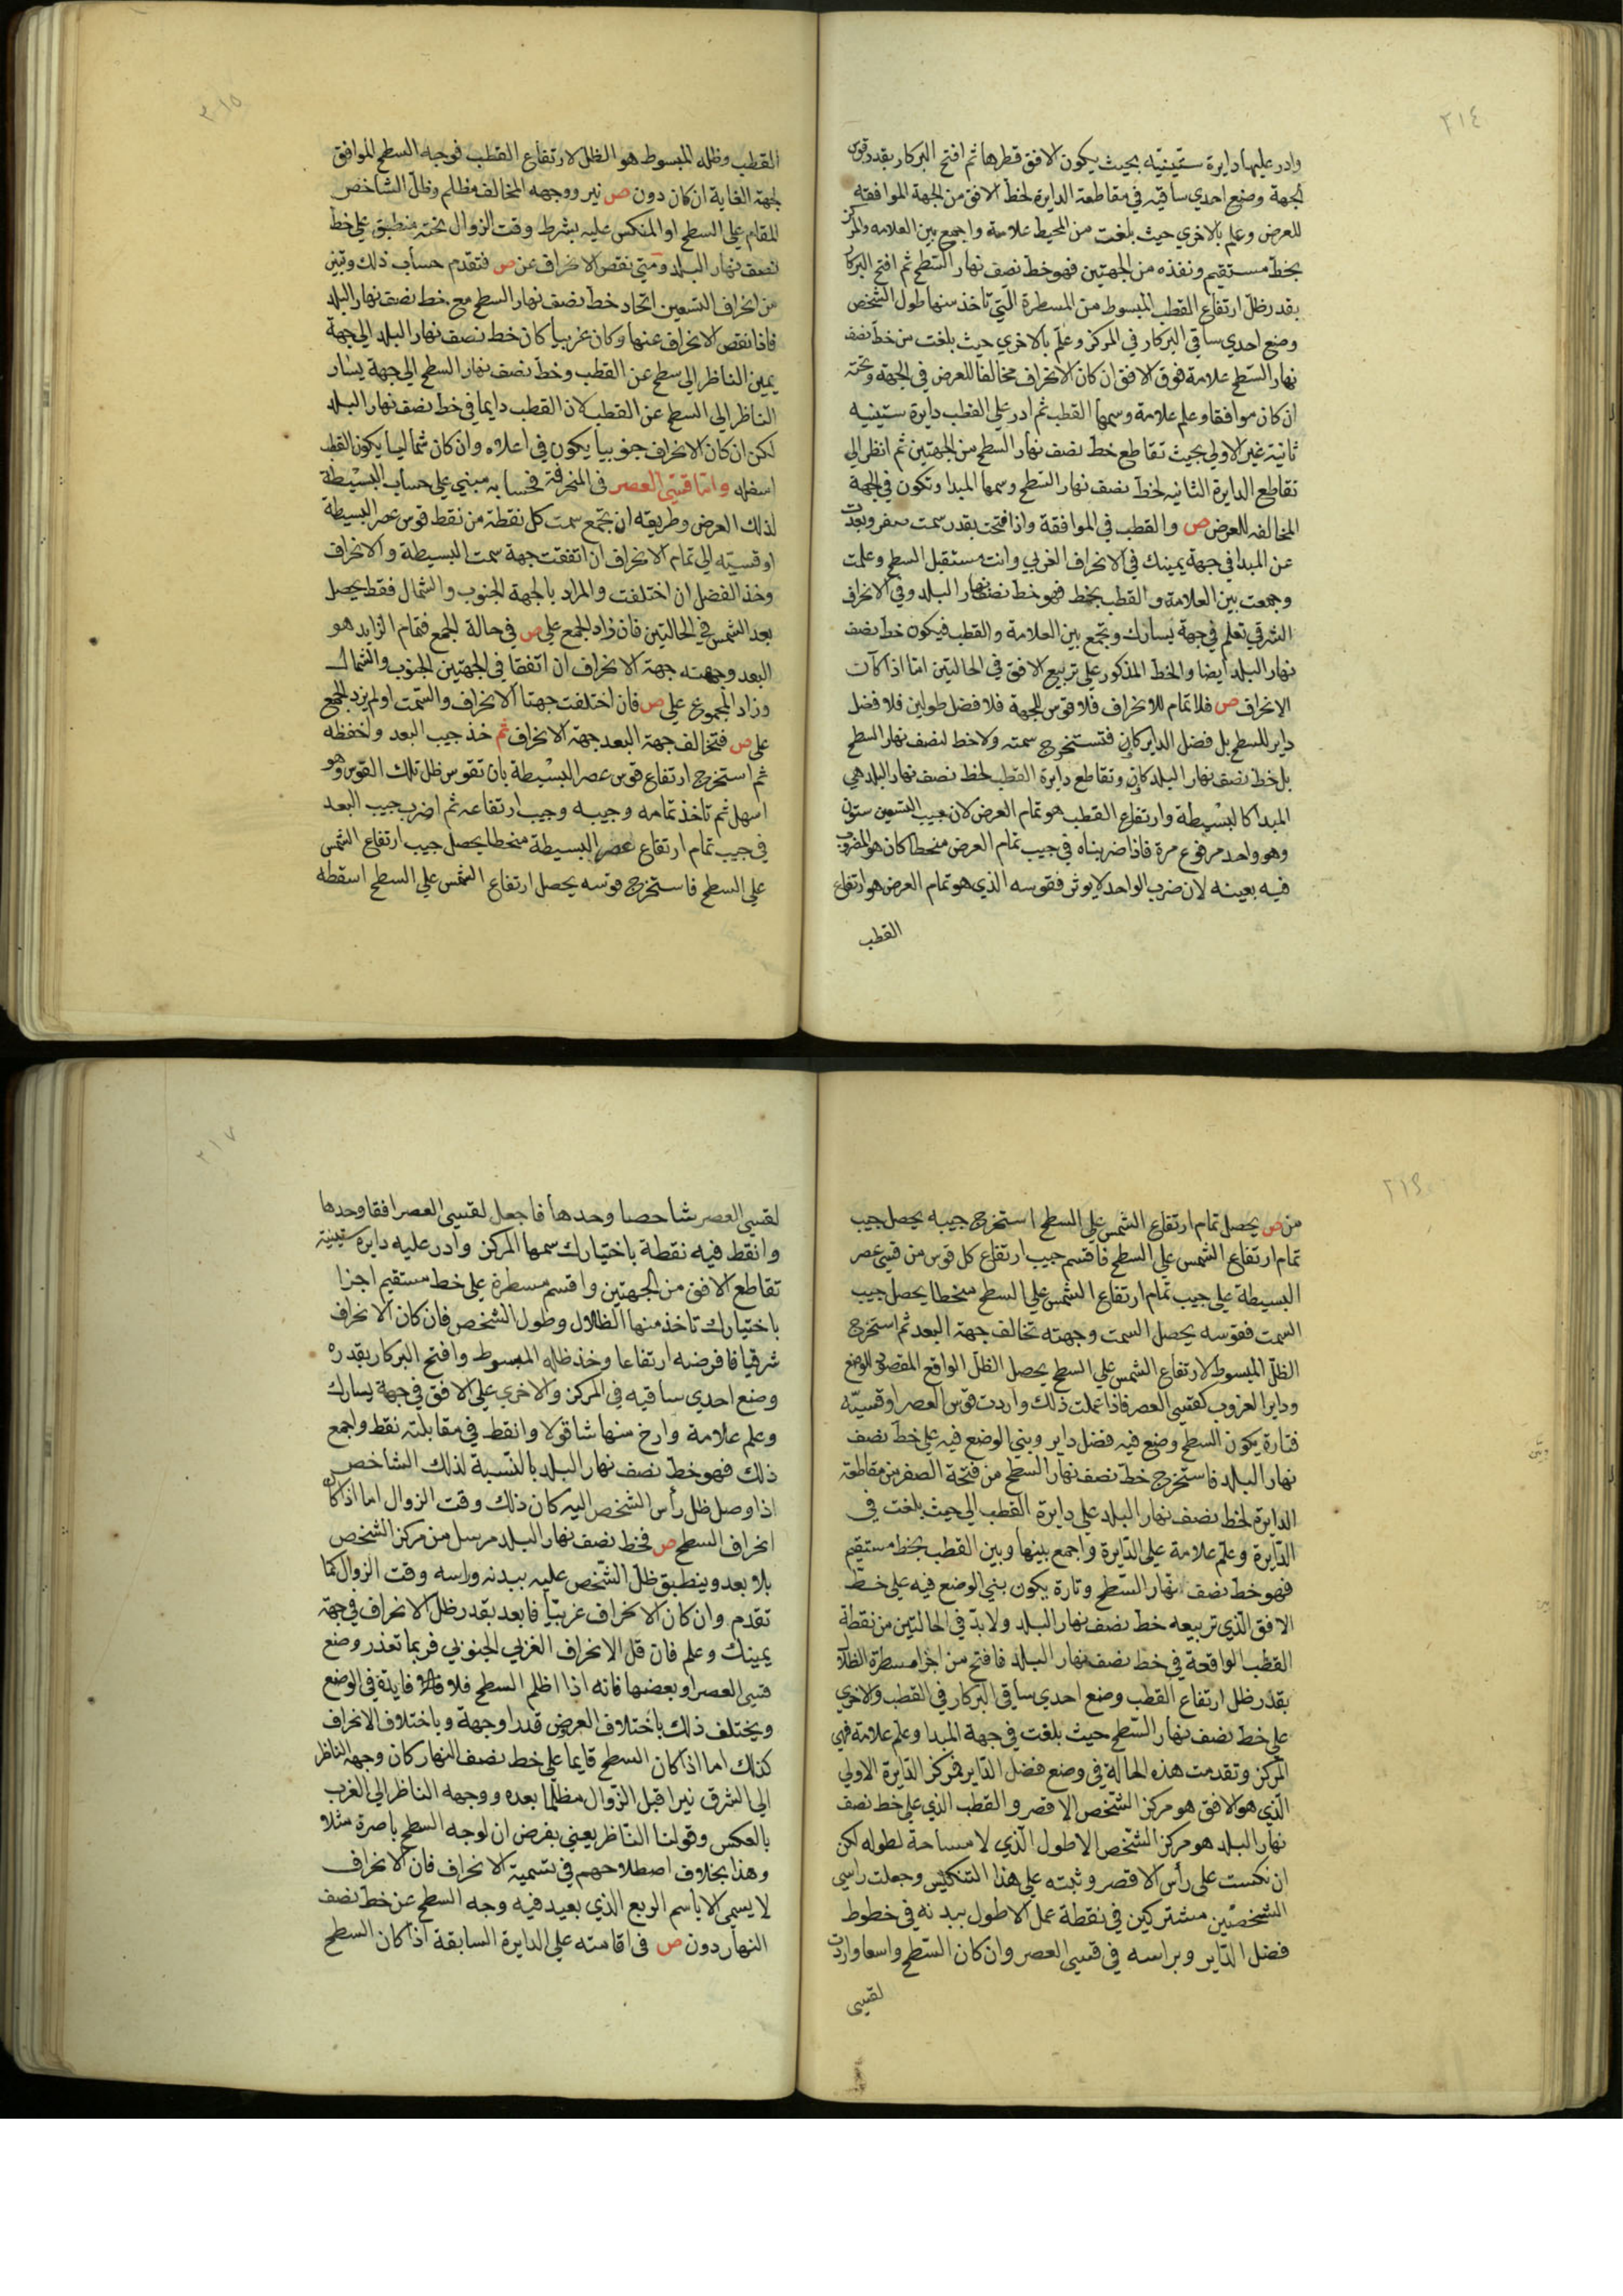 ٢١٤
وادر عليها دايرة ستينيه بحيث يكون الافق قطرها ثم افتح البركار بقدر قوس
الجهة وضع احدي ساقيه في مقاطعة الدايرة لخط الافق من الجهة الموافقه
للعرض وعلم بالاخري حيث بلغت من المحيط علامة واجمع بين العلامه والمركز
بخط مستقيم ونفذه من الجهتين فهو خط نصف نهار السطح ثم افتح البركار
بقدر ظل ارتفاع القطب المبسوط من المسطرة التي تاخذ منها طول الشخص
وضع احدي ساقي البركار في المركز وعلم بالاخري حيث بلغت من خط نصف
نهار السطح علامة فوق الافق ان كان الانحراف مخالفا للعرض في الجهة وتحته
ان كان موافقا وعلم علامة وسمها القطب ثم ادر علي القطب دايرة ستينيه
ثانية غير الاولي بحيث تقاطع خط نصف نهار السطح من الجهتين ثم انظر الي
تقاطع الدايرة الثانيه لخط نصف نهار السطح وسمها المبدا وتكون في الجهة
المخالفه للعرض ص والقطب في الموافقة واذا فتحت بقدر سمت صفر وبعدت
عن المبدا في جهة يمينك في الانحراف الغربي وانت مستقبل السطح وعلمت
وجمعت بين العلامة والقطب بخط فهو خط نصف نهار البلد وفي الانحراف
الشرقي تعلم في جهة يسارك وتجمع بين العلامة والقطب فيكون خط نصف
نهار البلد ايضا والخط المذكور علي تربيع الافق في الحاليتن امّا اذا كان
الانحراف ص فلا تمام للانحراف فلا قوس للجهة فلا فضل طولين فلا فضل
داير للسطح بل فضل الداير كاين فتستخرج سمته ولا خط لنصف نهار السطح
بل خط نصف نهار البلد كاين وتقاطع دايرة القطب لخط نصف نهار البلد هي
المبدا كالبسيطة وارتفاع القطب هو تمام العرض لان جيب التسعين ستون
وهو واحد مرفوع مرة فاذا ضربناه في جيب تمام العرض منحطا كان هو المضروب
فيه بعينه لان ضرب الواحد لا يوثر فقوسه الذي هو تمام العرض هو ارتفاع
القطب
٢١٥
القطب وظله المبسوط هو الظل لارتفاع القطب فوجه السطح الموافق
لجهة الغاية ان كان دون ص نير ووجهه المخالف مظلم وظل الشاخص
المقام علي السطح او المنكس عليه بشرط وقت الزوال بخته منطبق علي خط
نصف نهار البلد ومتي نقص الانحراف عن ص فتقدم حساب ذلك وتبين
من انحراف التسعين اتحاد خط نصف نهار السطح مع خط نصف نهار البلد
فاذا نقص الانحراف عنها وكان غربيا كان خط نصف نهار البلد الي جهة
يمين الناظر الي سطح عن القطب وخط نصف نهار السطح الي جهة يسار
الناظر الي السطح عن القطب لان القطب دايما في خط نصف نهار البلد
لكن ان كان الانحراف جنوبيا يكون في اعلاه وان كان شماليا يكون القطب
اسفله وامّا قسيّ العصر في المنحرفة فحسابه مبني علي حساب البسيطة
لذلك العرض وطريقه ان تجمع سمت كل نقطة من نقط قوس عصر البسيطة
او قسيّه الي تمام الانحراف ان اتفقت جهة سمت البسيطة والانحراف
وخذ الفضل ان اختلفت والمراد بالجهة الجنوب والشمال فقط يحصل
بعد الشمس في الحاليتن فان زاد الجمع علي ص في حالة الجمع فتمام الزايد هو
البعد وجهته جهة الانحراف ان اتفقا في الجهتين الجنوب والشمال
وزاد المجموع علي ص فان اختلفت جهتا الانحراف والسمت اولم يزد الجمع
علي ص فتخالف جهة البعد جهة الانحراف ثم خذ جيب البعد واحفظه
ثم استخرج ارتفاع قوس عصر البسيطة بان تقوس ظل تلك القوس وهو
اسهل ثم تاخذ تمامه وجيبه وجيب ارتفاعه ثم اضرب جيب البعد
في جيب تمام ارتفاع عصر البسيطة منحطا يحصل جيب ارتفاع الشمس
علي السطح فاستخرج قوسه يحصل ارتفاع الشمس علي السطح اسقطه
٢١٦
من ص يحصل تمام ارتفاع الشمس علي السطح استخرج جيبه يحصل جيب
تمام ارتفاع الشمس علي السطح فاقسم جيب ارتفاع كل قوس من قسي عصر
البسيطة علي جيب تمام ارتفاع الشمس علي السطح منحطا يحصل جيب
السمت فقوسه يحصل السمت وجهته تخالف جهة البعد ثم استخرج
الظل المبسوط لارتفاع الشمس علي السطح يحصل الظل الواقع المقصود الوضع
وداير الغروب كقسي العصر فاذا عملت ذلك واردت قوس العصر او قسيّه
فتارة يكون السطح وضع فيه فضل داير وبني الوضع فيه علي خط نصف
نهار البلد فاستخرج خط نصف نهار السطح من فتحة الصفر من مقاطعة
الدايرة لخط نصف نهار البلد علي دايرة القطب الي حيث بلغت في
الدايرة وعلم علامة علي الدايرة واجمع بينها وبين القطب بخط مستقيم
فهو خط نصف نهار السطح وتارة يكون بني الوضع فيه علي خط
الافق الذي تربيعه خط نصف نهار البلد ولا بد في الحاليتن من نقطة
القطب الواقعة في خط نصف نهار البلد فافتح من اجزا مسطرة الظلال
بقدر ظل ارتفاع القطب وضع احدي ساقي البركار في القطب والاخري
علي خط نصف نهار السطح حيث بلغت في جهة المبدا وعلم علامة فهي
المركز وتقدمت هذه الحالة في وضع فضل الداير فمركز الدايرة الاولي
الذي هو الافق هو مركز الشخص الاقصر والقطب الذي علي خط نصف
نهار البلد هو مركز الشخص الاطول الذي لا مساحة لطوله لكن
ان نكست علي رأس الاقصر وثبته علي هذا التنكيس وجعلت راسي
الشخصين مشتركين في نقطة عمل الاطول ببدنه في خطوط
فضل الداير وبراسه في قسي العصر وان كان السطح واسعا واردت
لقسي
٢١٧
لقسي العصر شاخصا وحدها فاجعل لقسي العصر افقا وحدها
وانقط فيه نقطة باختيارك سمها المركز وادر عليه دايرة ستينية
تقاطع الافق من الجهتين واقسم مسطرة علي خط مستقيم اجزا
باختيارك تاخذ منها الظلال وطول الشخص فان كان الانحراف
شرقيا فافرضه ارتفاعا وخذ ظله المبسوط وافتح البركار بقدره
وضع احدي ساقيه في المركز والاخري علي الافق في جهة يسارك
وعلم علامة وارخ منها شاقولا وانقط في مقابلته نقط واجمع
ذلك فهو خط نصف نهار البلد بالنسبة لذلك الشاخص
اذا وصل ظل رأس الشخص اليه كان ذلك وقت الزوال اما اذا كان
انحراف السطح ص فخط نصف نهار البلد مرسل من مركز الشخص
بلا بعد وينطبق ظل الشخص عليه ببدنه وراسه وقت الزوال كما
تقدم وان كان الانحراف غربيا فابعد بقدر ظل الانحراف في جهة
يمينك وعلم فان قل الانحراف الغربي الجنوبي فربما تعذر وضع
قسي العصر او بعضها فانه اذا اظلم السطح فلا فايدة في الوضع
ويختلف ذلك باختلاف العرض قدرا وجهة وباختلاف الانحراف
كذلك اما اذا كان السطح قايما علي خط نصف النهار كان وجهه الناظر
الي الشرق نيرا قبل الزوال مظلما بعده ووجهه الناظر الي الغرب
بالعكس وقولنا الناظر يعني بفرض ان لوجه السطح باصرة مثلا
وهذا بخلاف اصطلاحهم في تسمية الانحراف فان الانحراف
لا يسمي الا باسم الربع الذي بعيد فيه وجه السطح عن خط نصف
النهار دون ص في اقامته علي الدايرة السابقة اذا كان السطح